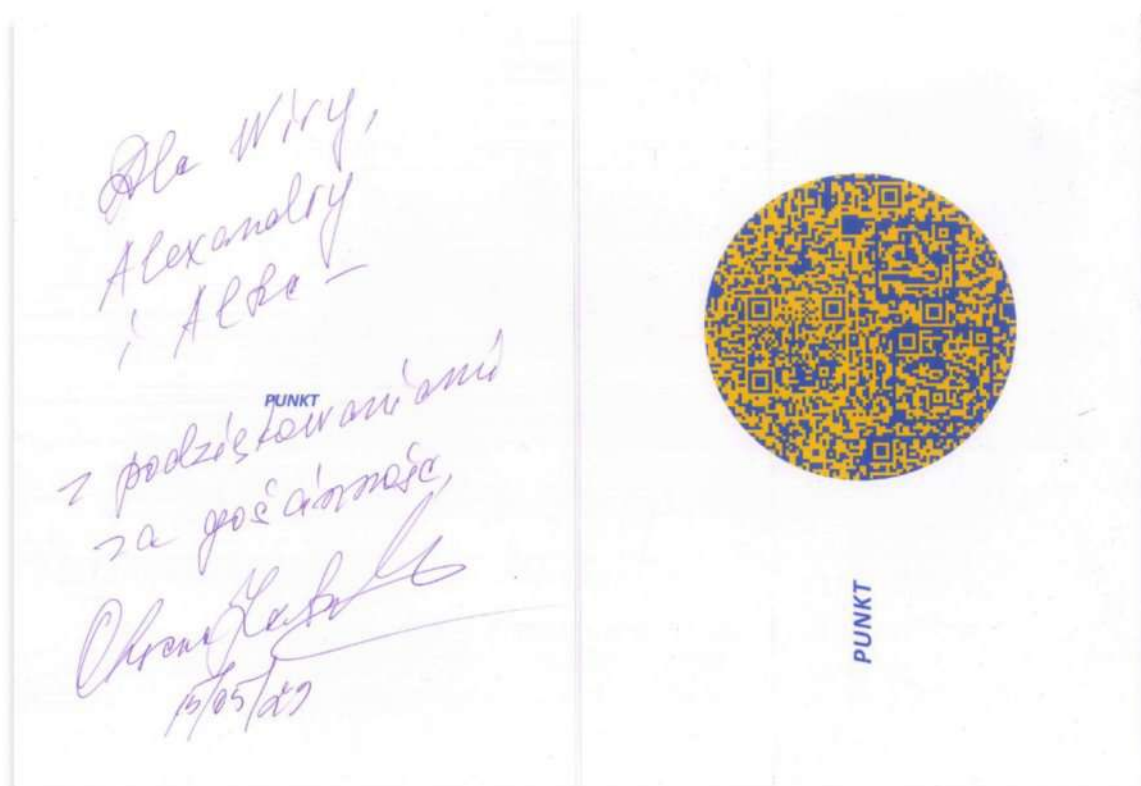 Dla Wiry,
Alexandry
i Alka –
PUNKT
z podziękowaniami
za gościnność,
Oksana
15/05/23
PUNKT